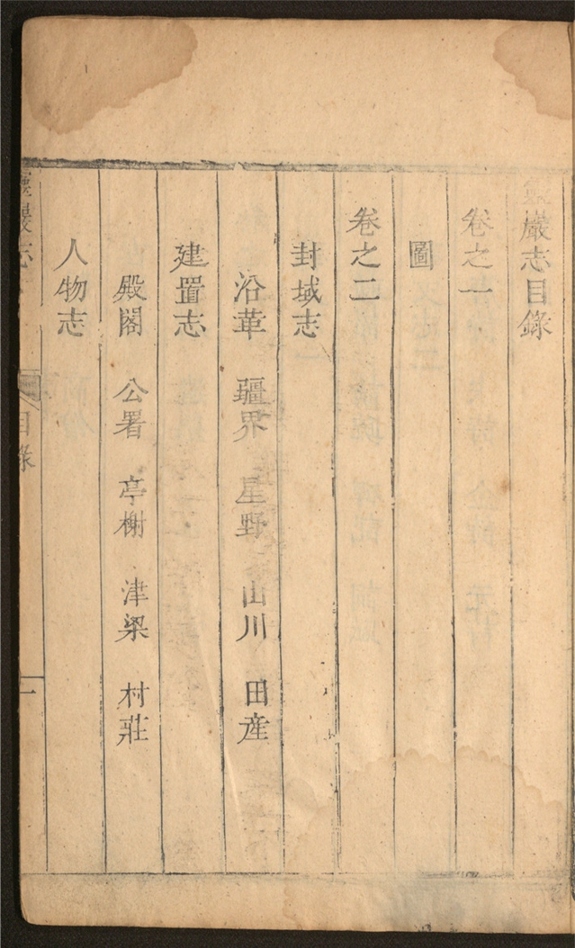 靈巖志目錄
卷之一
圖
卷之二
封域志
沿革 疆界 星野 山川 田産
建置志
殿閣 公署 亭榭 津梁 村莊
人物志
靈巖志 目錄 一